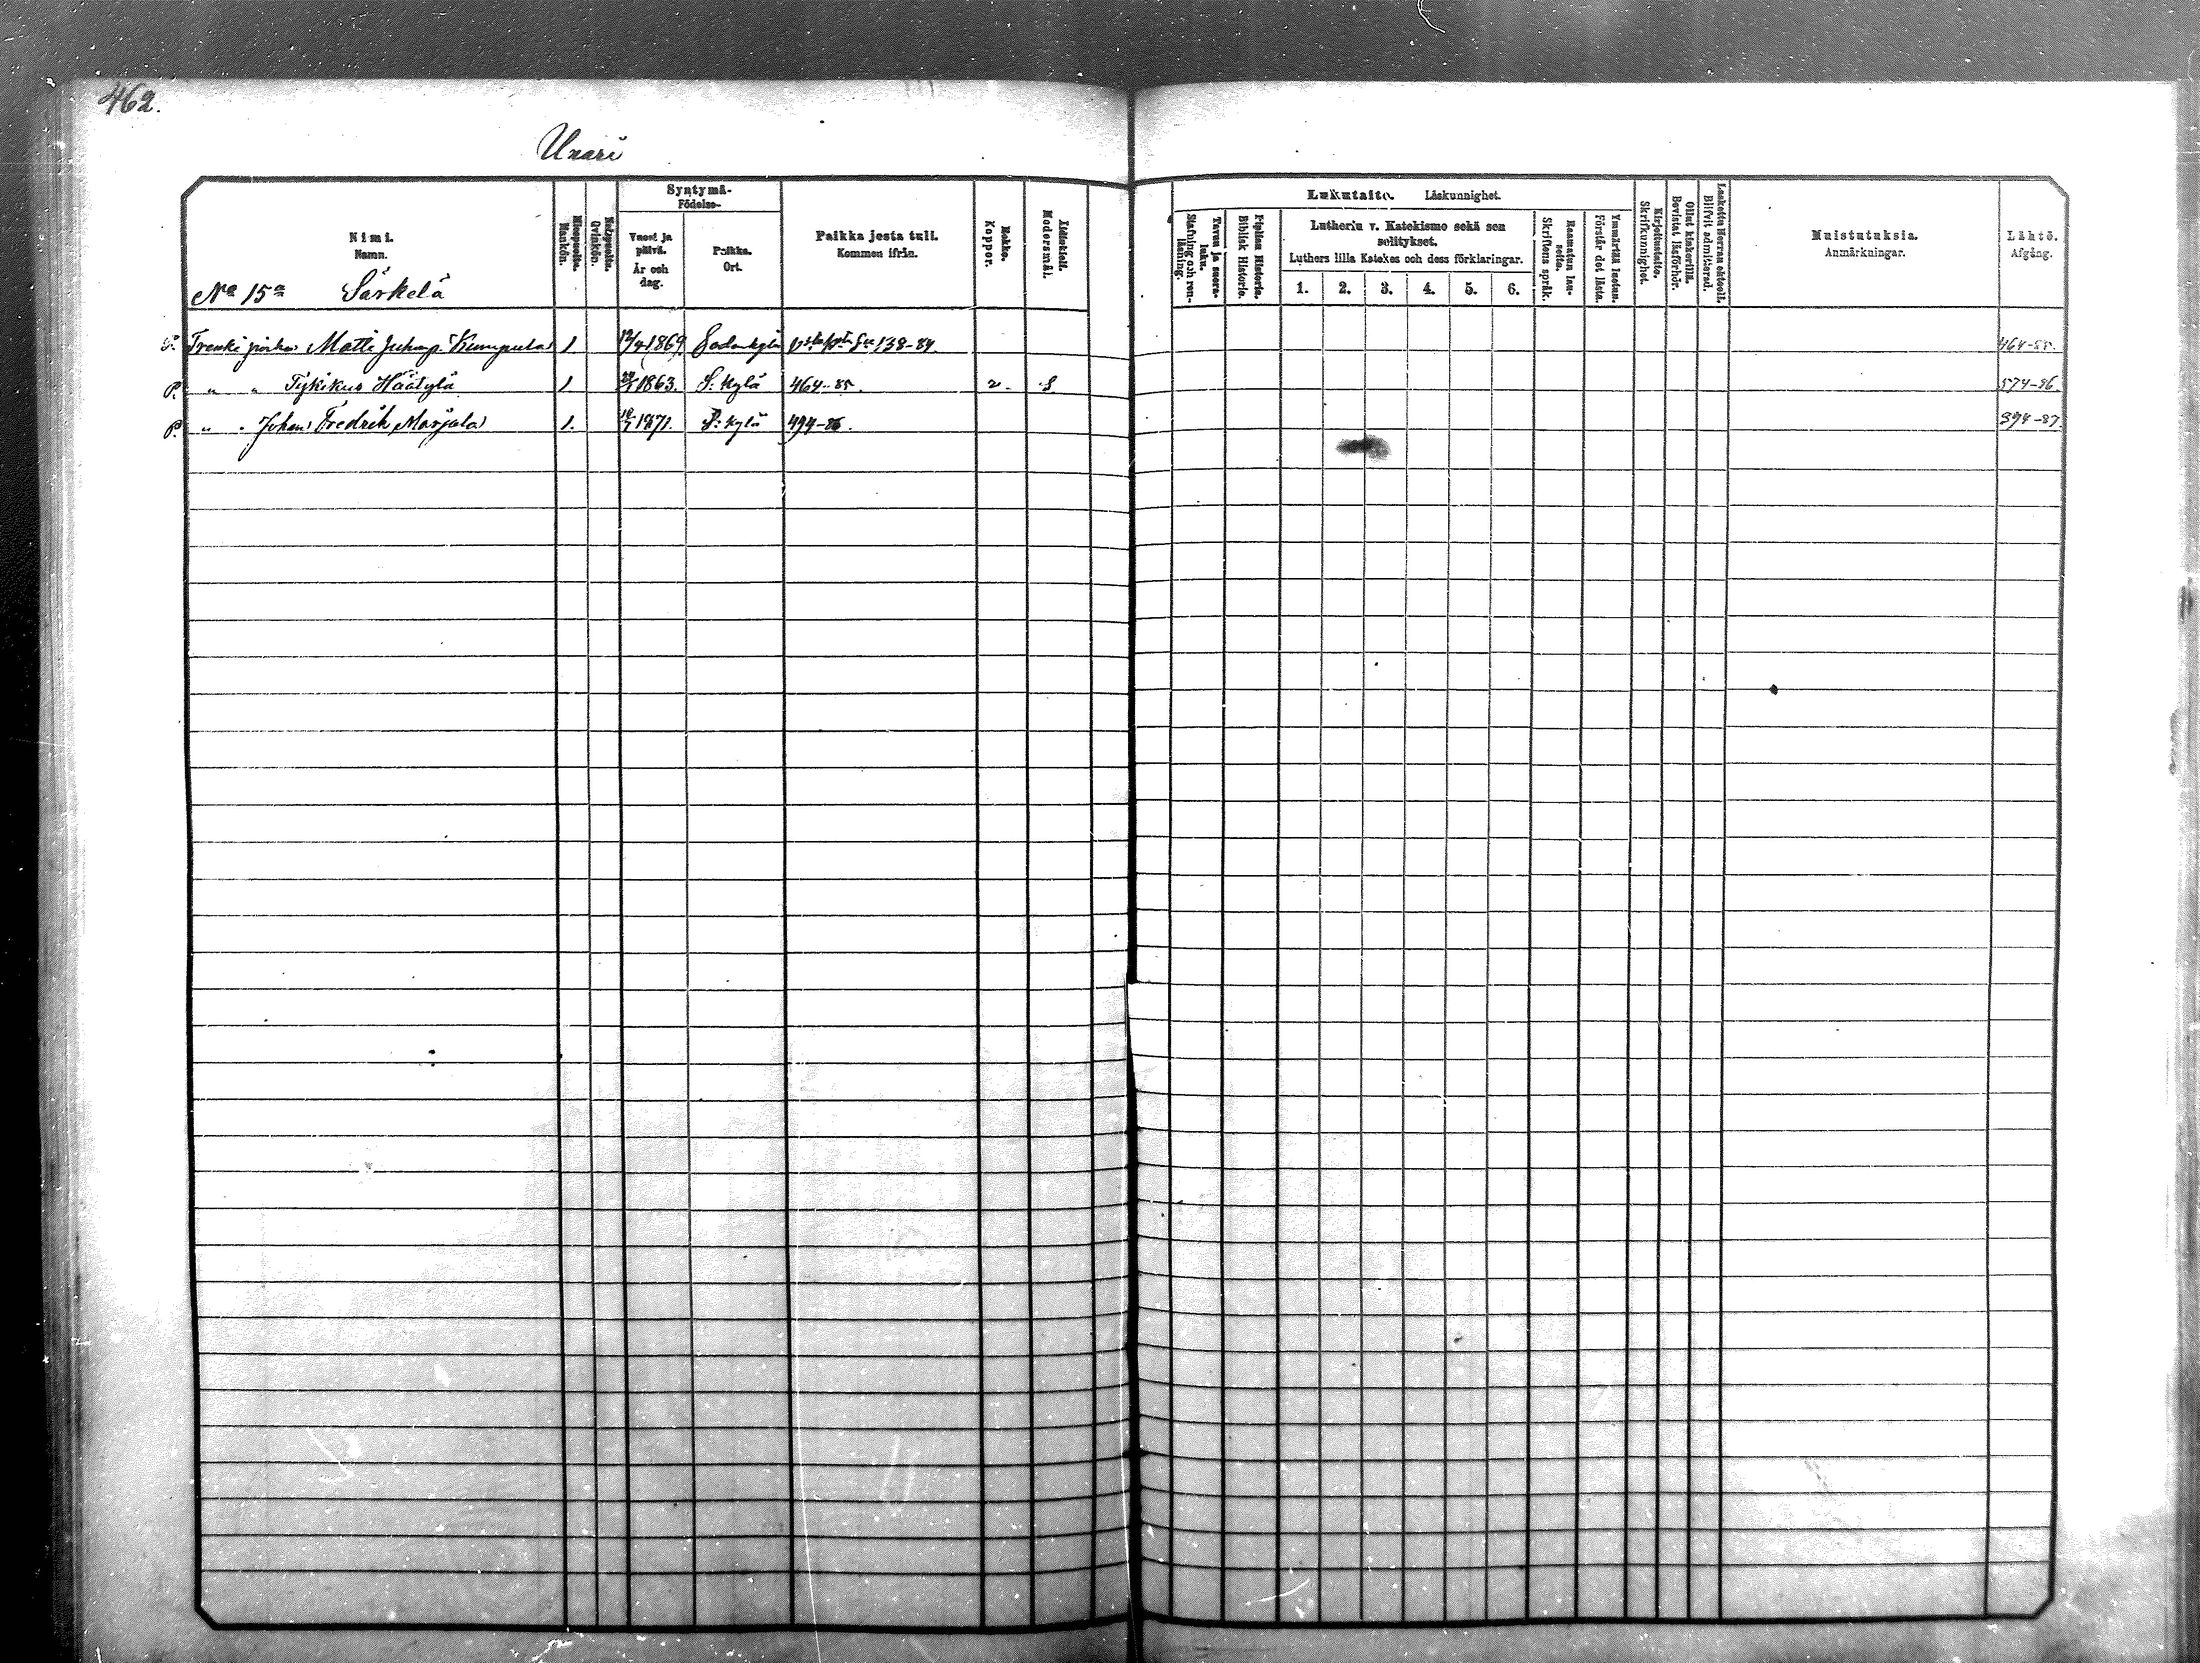 462.
Unari
Nimi.
Namn.
Miespuolia.
Mankön.
Naispuolia.
Qvinkön.
Syntymä-
Födelse-
Vuosi ja päivä.
År och dag.
Paikka.
Ort.
Paikka josta tuli.
Kommen ifrån.
Rokko.
Koppor.
Äidinkieli.
Modersmål.
Lukutaito. Läskunnighet.
Tavuu ja suora-luku.
Stafning och ren-läsning.
Piplian Historia.
Biblisk Historie.
Lutherin v. Katekismo sekä sen selitykset.
Luthers lilla Katekes och dess förklaringar.
1. 2. 3. 4. 5. 6.
Raamatun lau-seita.
Skriftens språk.
Ymmärtää luetun.
Förstår det lästa.
Kirjoitustaito.
Skrifkunnighet.
Ollut kinkerillä.
Bevistat läsförhör.
Laskettu Herran ehtooll.
Blifvit admitterad.
Muistutuksia.
Anmärkningar.
Lähtö.
Afgång.
No 15a Särkelä
P. Trenki poika Matti Juhanp. Kumpula 1 1869 Sodankylä 138-84. 464-85.
P. " " Tykikus Häätylä 1 1863. S:kylä 464-85. 2. S 574-86.
P. " " Johan Fredrik Marjala 1. 1871. S:kylä 494-86. 394-87.